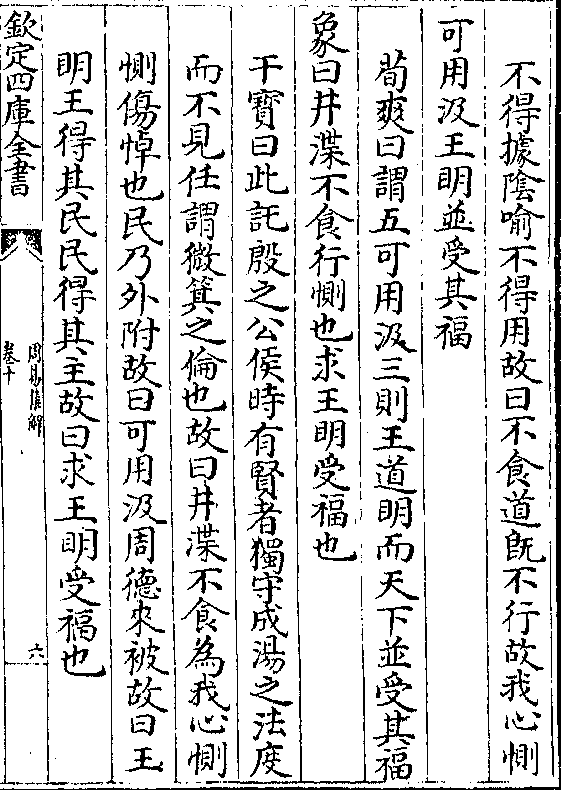 不得據陰喻不得用故曰不食道既不行故我心惻
可用汲王明並受其福
荀爽曰謂五可用汲三則王道明而天下並受其福
象曰井渫不食行惻也求王明受福也
干寶曰此託殷之公侯時有賢者獨守成湯之法度
而不見任謂微箕之倫也故曰井渫不食為我心惻
惻傷悼也民乃外附故曰可用汲周德來被故曰王
明王得其民民得其主故曰求王明受福也
欽定四庫全書
周易集解
卷十
六